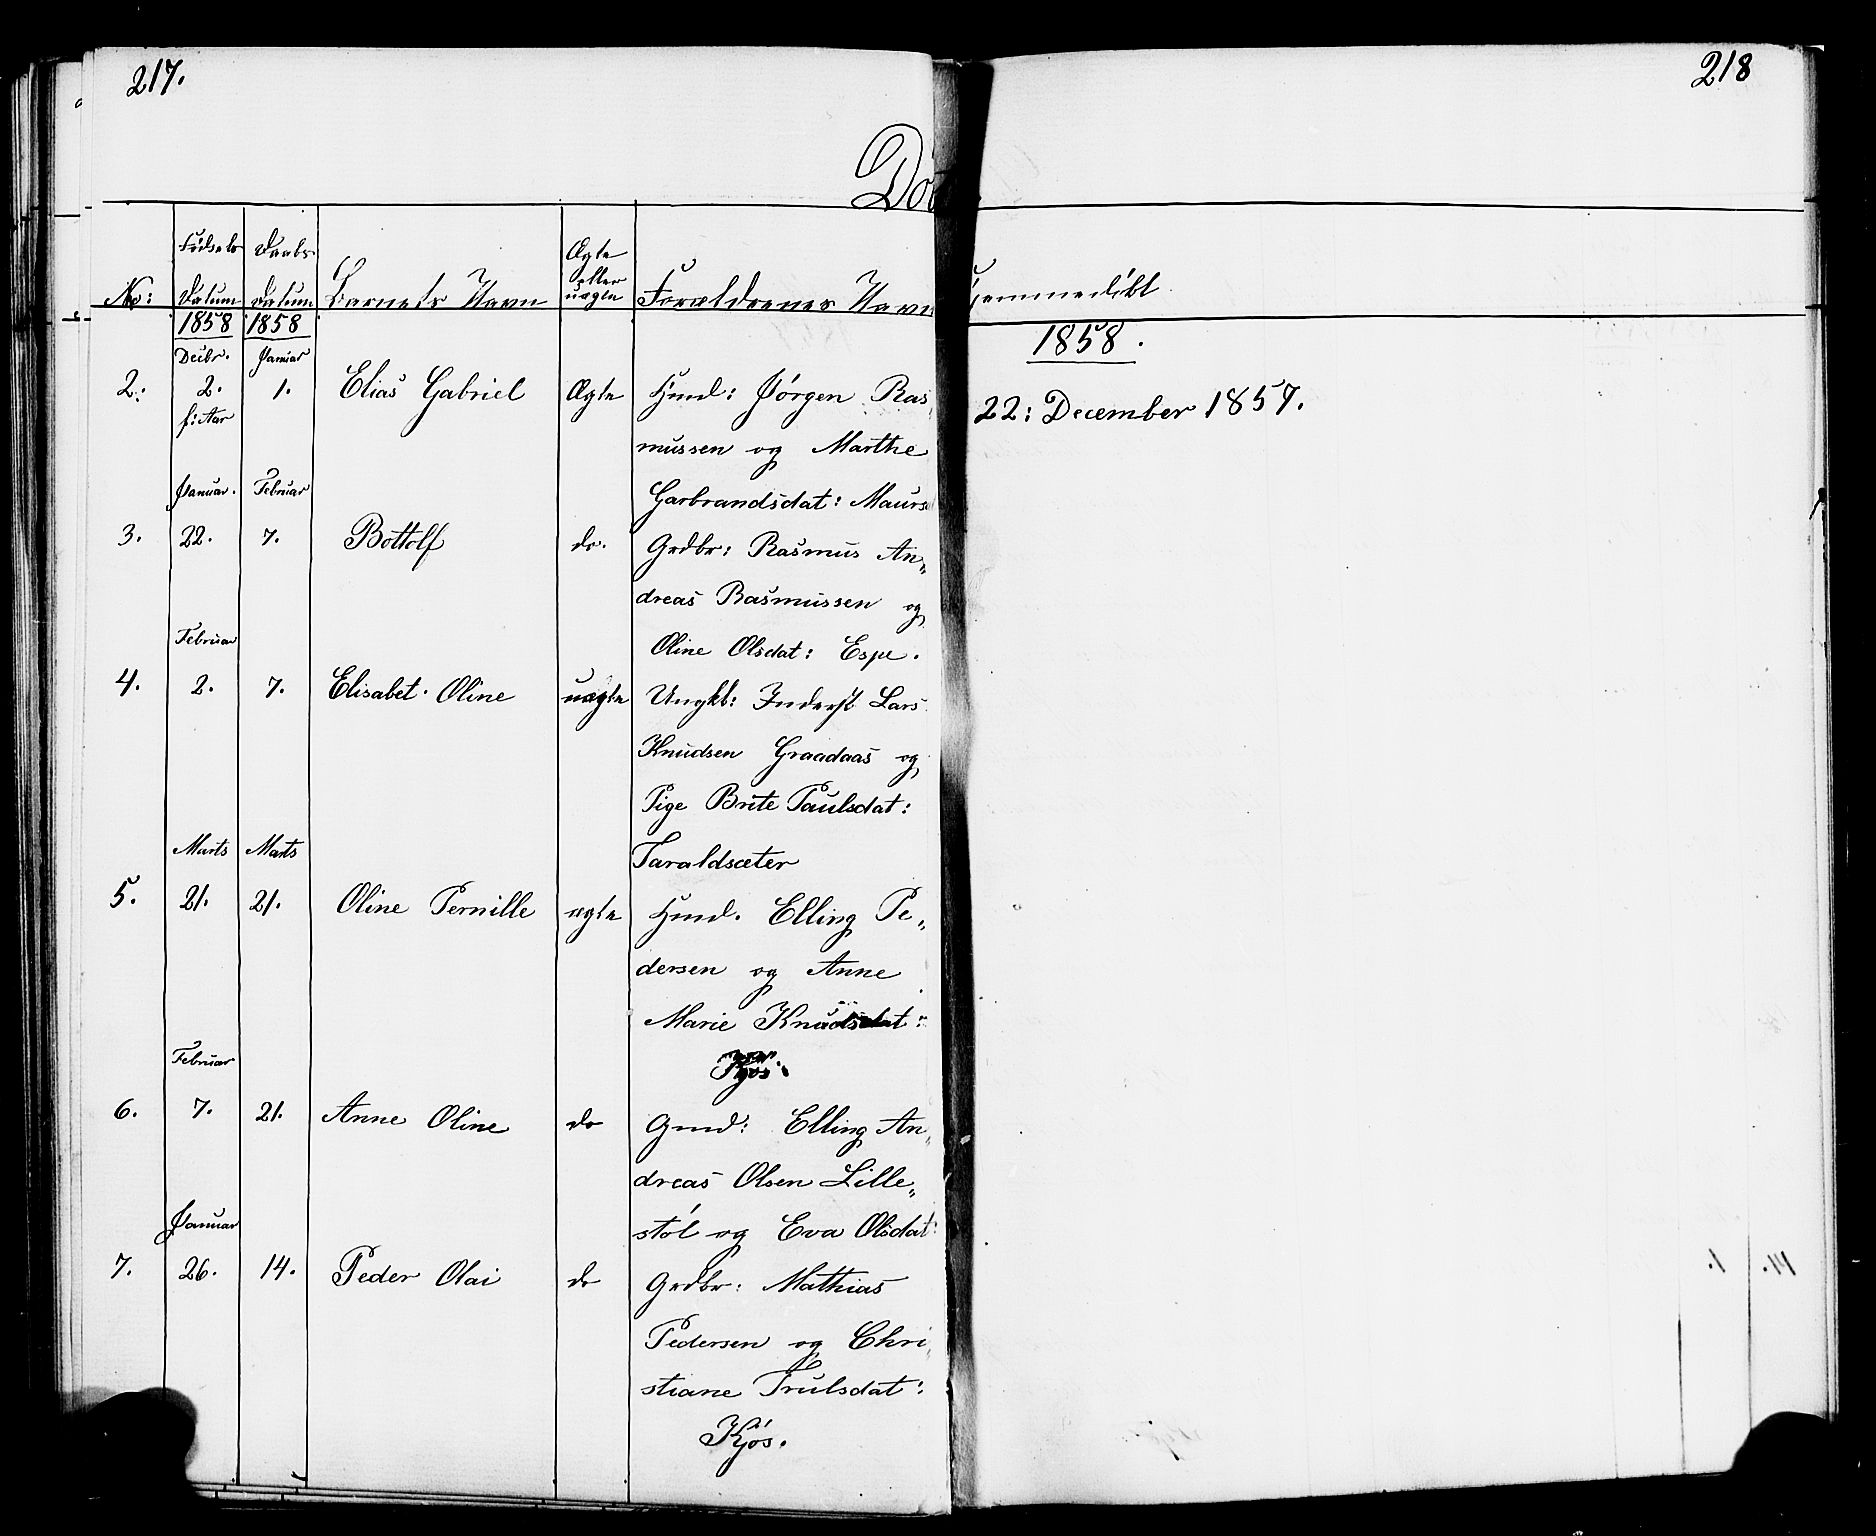 217.
218
Dö
No: Födsels Datum Daabs Datum Barnets Navn Ægte eller uægte Forældrenes Navn
Hjemmedöbt
1858 1858
1858.
Decbr. Januar
2: 2. 1. Elias Gabriel Ægte Hmd: Jörgen Ras
f: Aar
22: December 1857.
mussen og Marthe
Garbrandsdat: Maurs
Januar. Februar
3. 22. 7. Bottolf do. Grdbr: Rasmus An„
dreas Rasmussen og
Oline Olsdat: Espe.
Februar
4. 2. 7. Elisabet Oline uægte Ungkl: Inderst Lars
Knudsen Graadaas og
Pige Brite Paulsdat:
Taraldsæter
Marts Marts
5. 21. 21. Oline Pernille ægte Hmd. Elling Pe„
dersen og Anne
Marie Knudsdat:
Kjös.
Februar
6. 7. 21. Anne Oline do Gmd: Elling An„
dreas Olsen Lille„
stöl og Eva Olsdat:
Januar
7. 26. 14. Peder Olai do Grdbr: Mathias
Pedersen og Chri
stiane Trulsdat:
Kjös.